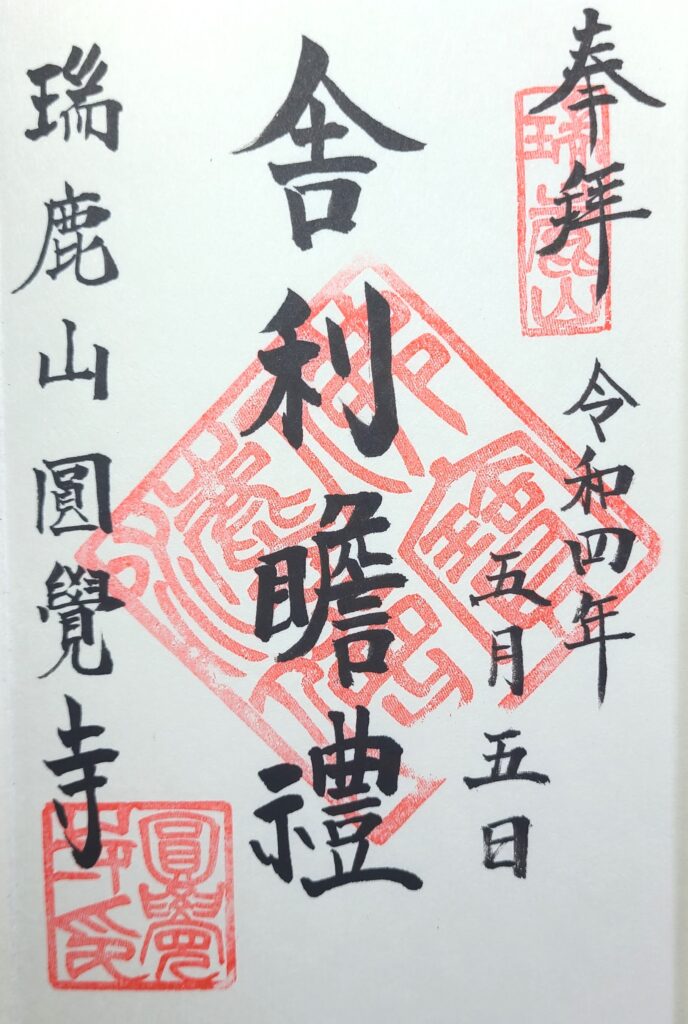 奉拜
令和四年
五月五日
舎利瞻禮
瑞鹿山圓覺寺
瑞鹿山
佛法僧寶
圓覺寺印